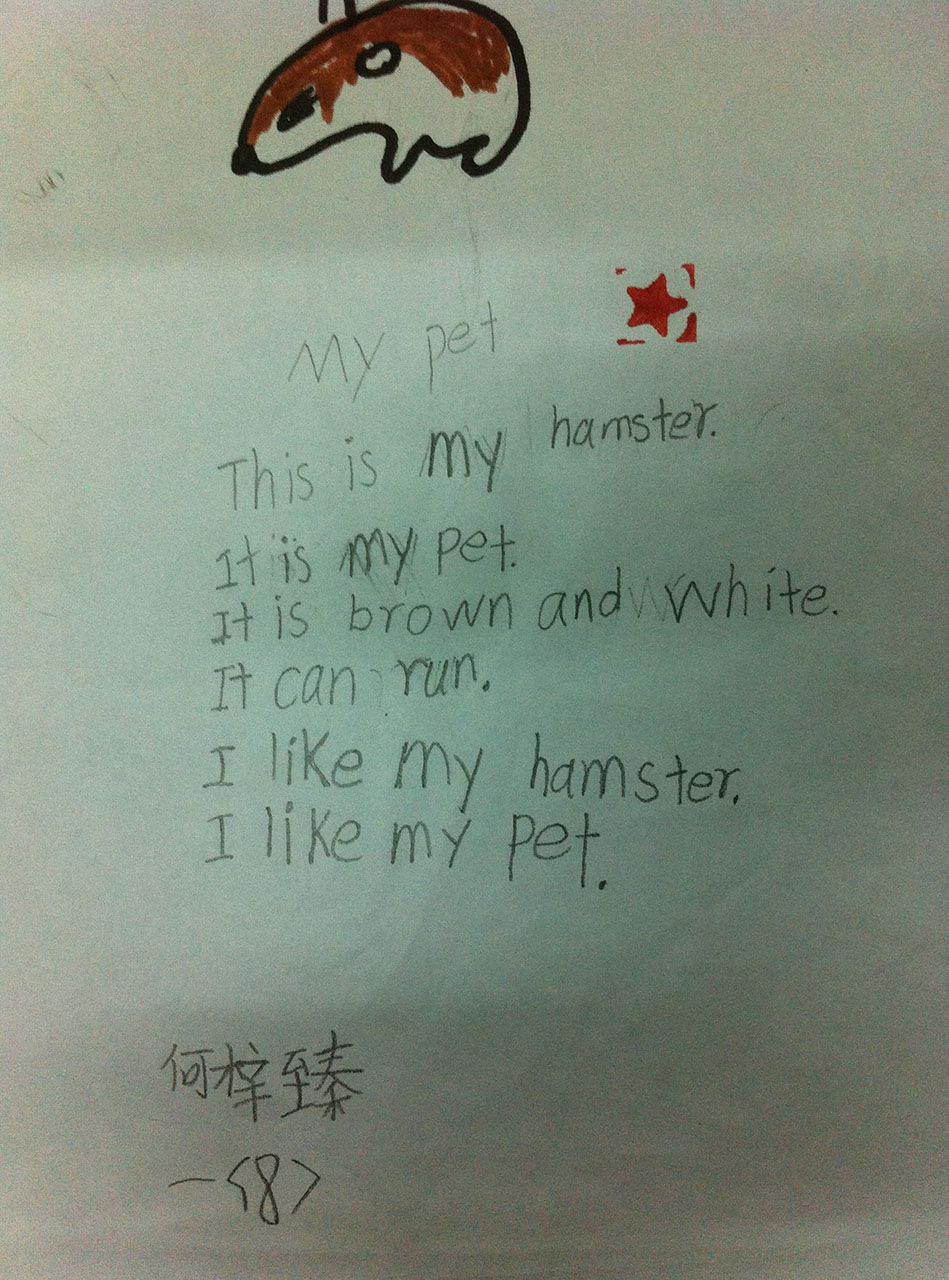 My pet
This is my hamster.
It is my pet.
It is brown and white.
It can run.
I like my hamster.
I like my pet.
何梓臻
一<8>